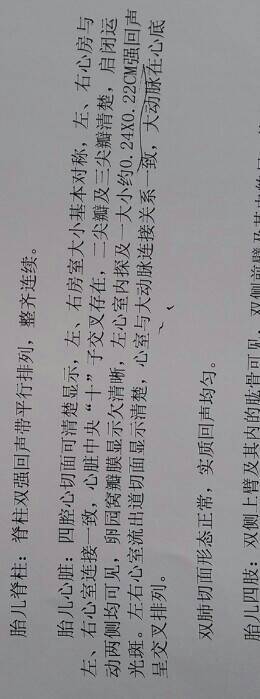 胎儿脊柱：脊柱双强回声带平行排列，整齐连续。
胎儿心脏：四腔心切面可清楚显示，左、右房室大小基本对称，左、右心房与
左、右心室连接一致，心脏中央“十”子交叉存在，二尖瓣及三尖瓣清楚，启闭运
动两侧均可见，卵园窝瓣膜显示欠清晰，左心室内探及一大小约0.24X0.22CM强回声
光斑。左右心室流出道切面显示清楚，心室与大动脉连接关系一致，大动脉在心底
呈交叉排列。
双肺切面形态正常，实质回声均匀。
胎儿四肢：双侧上臂及其内的肱骨可见，双侧前臂及其内的